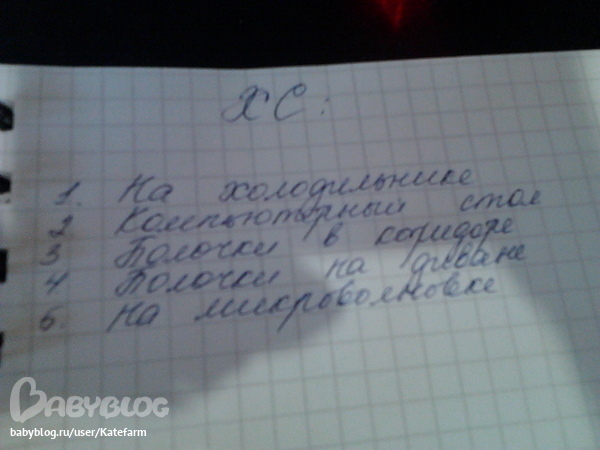 ХС:
1. На холодильнике
2 Компьютерный стол
3 Полочки в коридоре
4 Полочки на диване
5. На микроволновке
BABYBLOG
babyblog.ru/user/Katefarm